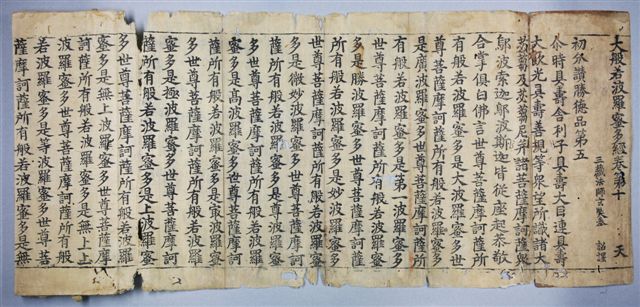 大般若波羅蜜多經卷第十 天
三藏法師玄奘奉 詔譯
初分讚勝德品第五
尒時具壽舍利子具壽大目連具壽
大飲光具壽善現等衆望所識諸大
苾芻及苾芻尼并諸菩薩摩訶薩
鄔波索迦鄔波斯迦皆從座起恭敬
合掌俱白佛言世尊菩薩摩訶薩所
有般若波羅蜜多是大波羅蜜多世
尊菩薩摩訶薩所有般若波羅蜜多
是廣波羅蜜多世尊菩薩摩訶薩所
有般若波羅蜜多是第一波羅蜜多
世尊菩薩摩訶薩所有般若波羅蜜
多是勝波羅蜜多世尊菩薩摩訶薩
所有般若波羅蜜多是妙波羅蜜多
世尊菩薩摩訶薩所有般若波羅蜜
多是微妙波羅蜜多世尊菩薩摩訶
薩所有般若波羅蜜多是尊波羅蜜
多世尊菩薩摩訶薩所有般若波羅
蜜多是高波羅蜜多世尊菩薩摩訶
薩所有般若波羅蜜多是最波羅蜜
多世尊菩薩摩訶薩所有般若波羅
蜜多是極波羅蜜多世尊菩薩摩訶
薩所有般若波羅蜜多是上波羅蜜
多世尊菩薩摩訶薩所有般若波羅
蜜多是無上波羅蜜多世尊菩薩摩
訶薩所有般若波羅蜜多是無上上
波羅蜜多世尊菩薩摩訶薩所有般
若波羅蜜多是等波羅蜜多世尊菩
薩摩訶薩所有般若波羅蜜多是無